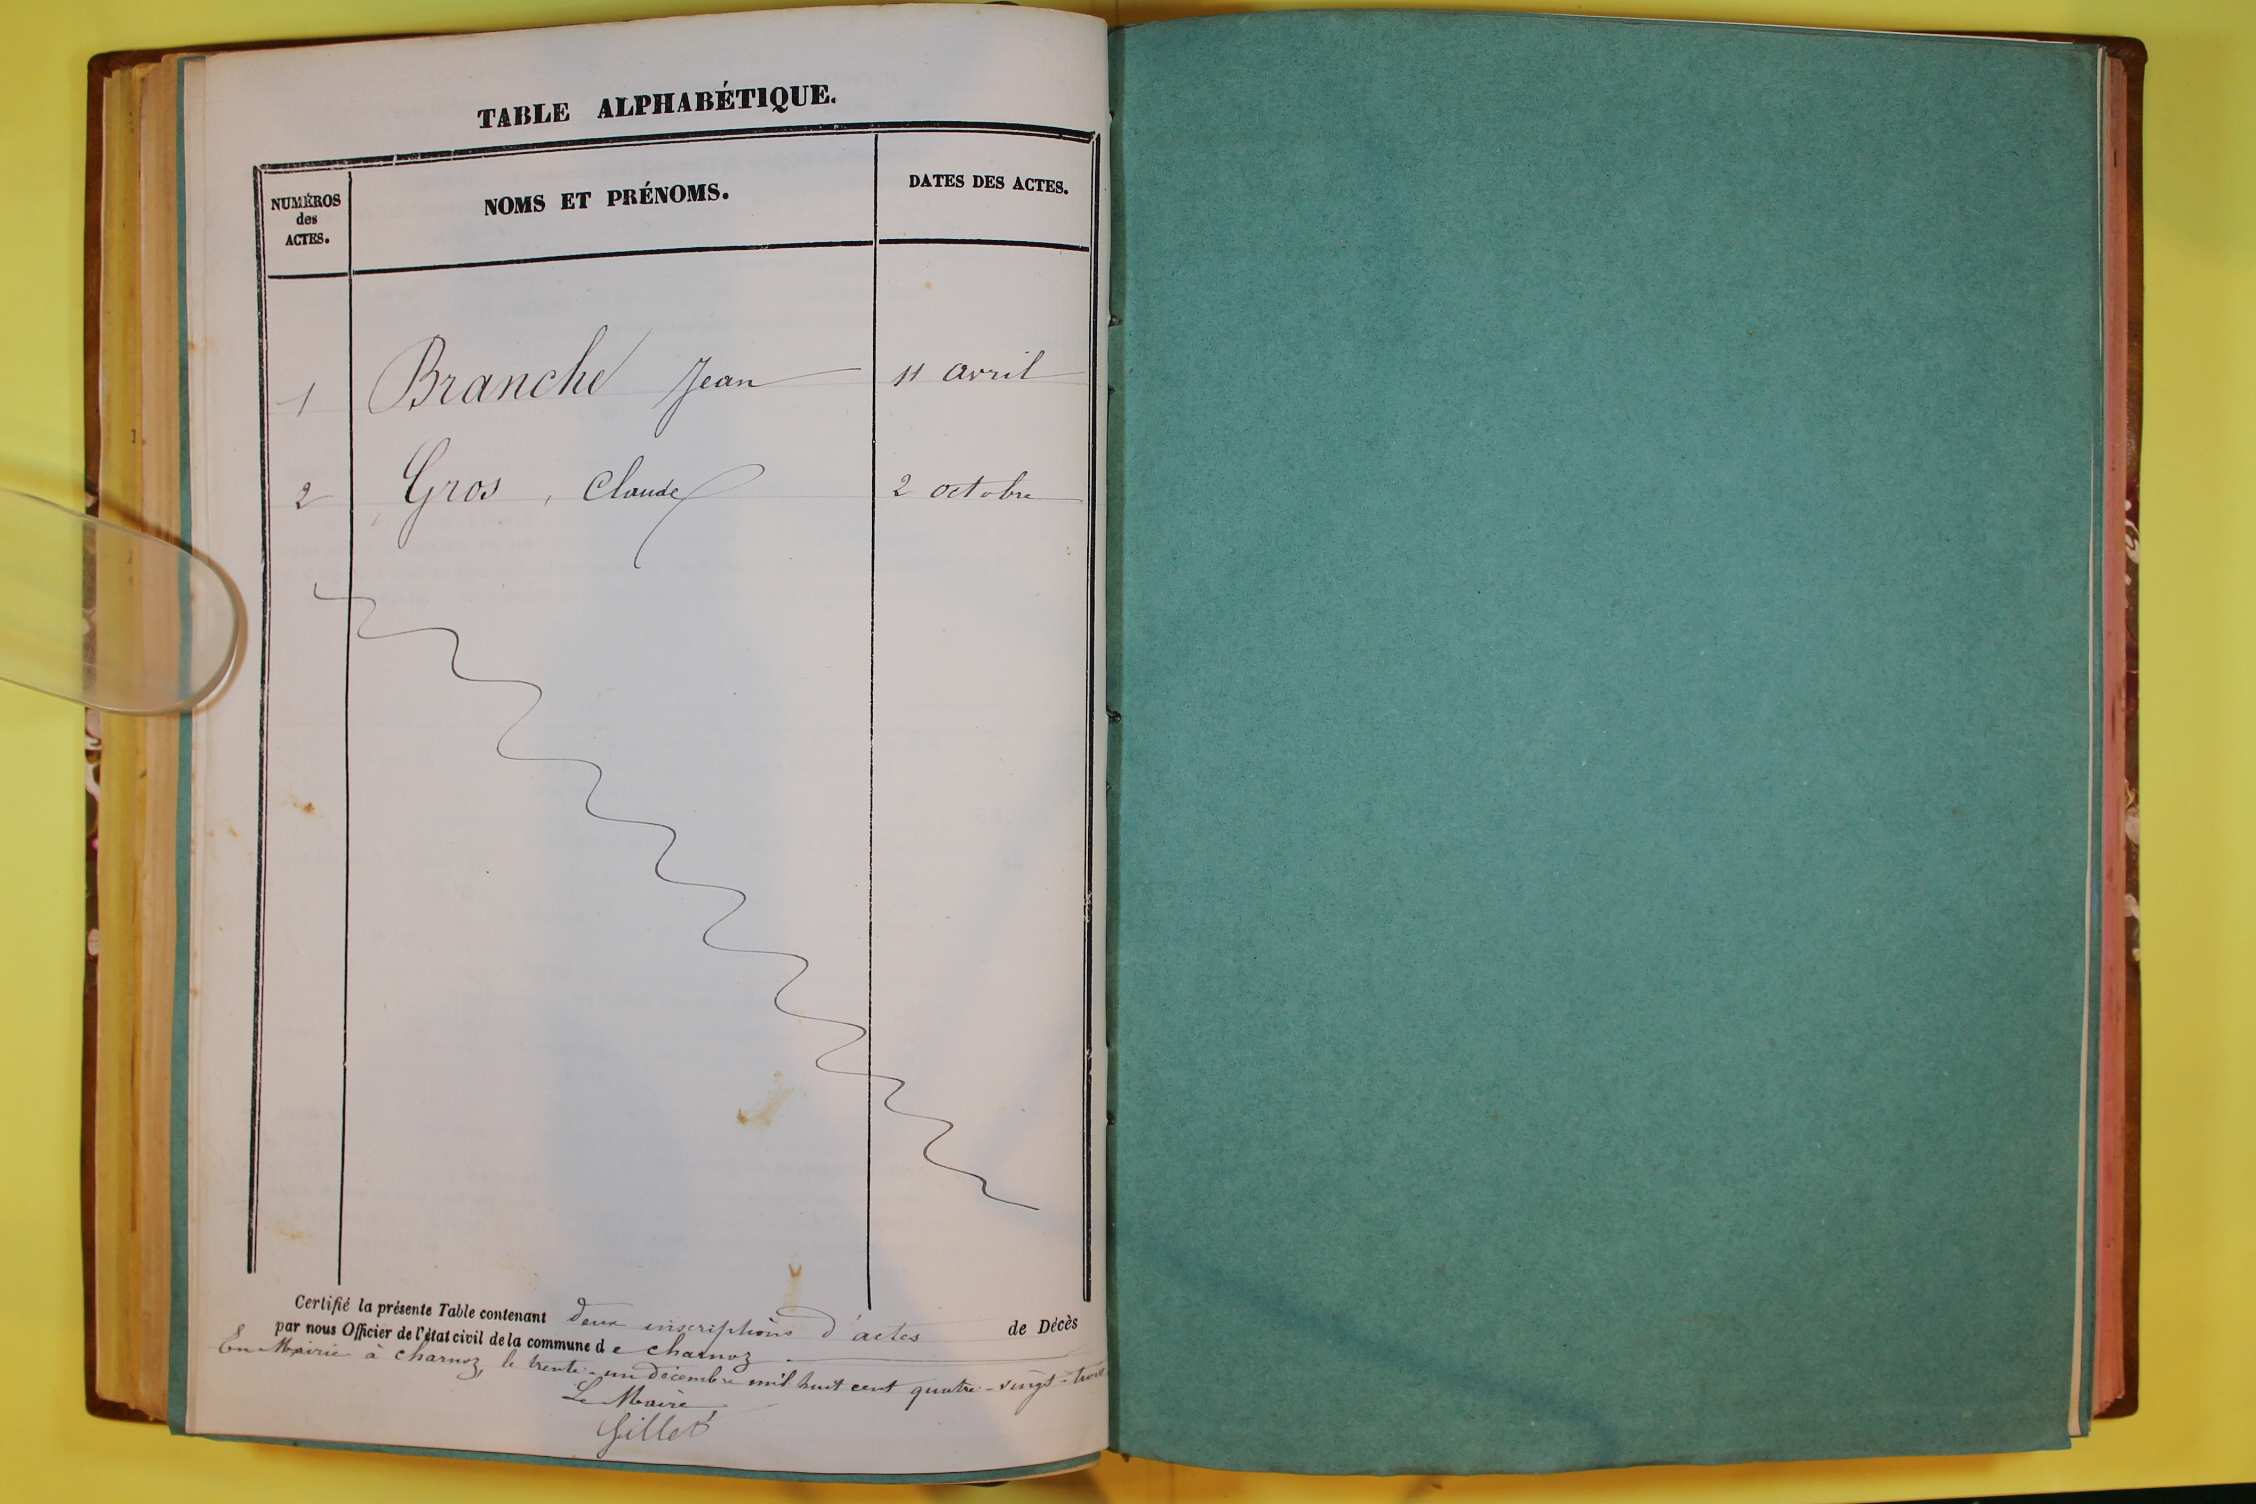 TABLE ALPHABÉTIQUE.
NUMÉROS
des
ACTES.
NOMS ET PRÉNOMS.
DATES DES ACTES.
1 Branche Jean 11 avril
2 Gros, Claude 2 octobre
Certifié la présente Table contenant deux inscriptions d'actes de Décès
par nous Officier de l'état civil de la commune de charnoz
En Mairie à charnoz, le trente-un décembre mil huit cent quatre-vingt-trois
Le Maire
Gillet